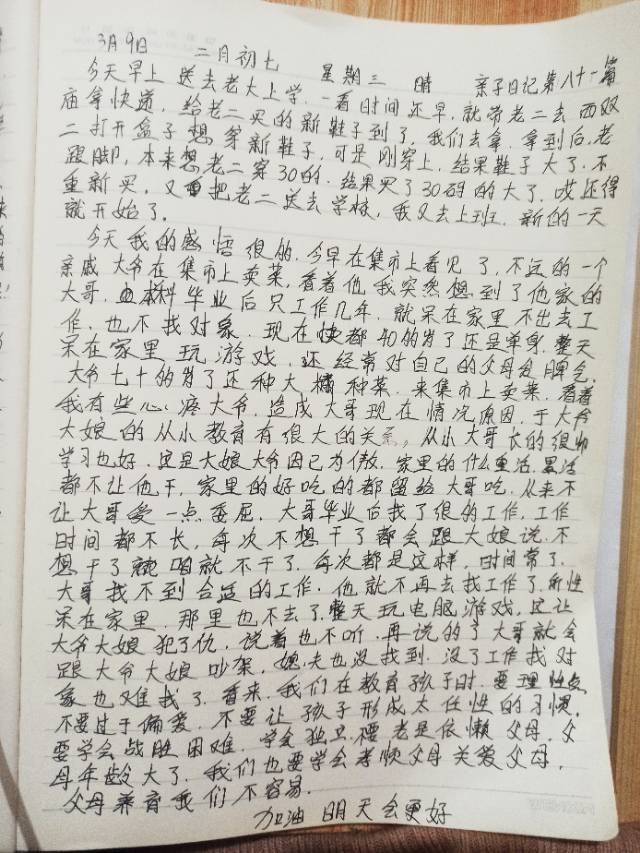 3月9日 二月初七 星期三 晴 亲子日记第八十一篇
今天早上送去老大上学.一看时间还早,就带老二去西双
庙拿快递,给老二买的新鞋子到了,我们去拿.拿到后,老
二打开盒子想穿新鞋子,可是刚穿上,结果鞋子大了.不
跟脚,本来想老二穿30的.结果买了30码的大了.哎还得
重新买,又把老二送去学校,我又去上班.新的一天
就开始了.
今天我的感悟很的.今早在集市上看见了,不远的一个
亲戚大爷在集市上卖菜,看着他我突然想到了他家的
大哥.本科毕业后只工作几年.就呆在家里不出去工
作.也不找对象.现在快都40的岁了还是单身.整天
呆在家里玩游戏.还经常对自己的父母发脾气.
大爷七十的岁了还种大棚种菜.来集市上卖菜.看着
我有些心疼大爷.造成大哥现在情况原因.于大爷
大娘的从小教育有很大的关系,从小大哥长的很帅
学习也好.这是大娘大爷因已为傲.家里的什么重活.累活
都不让他干,家里的好吃的都留给大哥吃.从来不
让大哥受一点委屈.大哥毕业后找了很的工作.工作
时间都不长,每次不想干了都会跟大娘说.不
想干了咱就不干了.每次都是这样,时间常了.
大哥找不到合适的工作.他就不再去找工作了.所性
呆在家里.那里也不去了.整天玩电脑游戏.这让
大爷大娘犯了仇,说着也不听.再说的了大哥就会
跟大爷大娘吵架.媳夫也没找到.没了工作找对
象也难找了.看来.我们在教育孩子时.要理性点
不要过于偏爱.不要让孩子形成太任性的习惯.
要学会战胜困难.学会独立.不要老是依懒父母.父
母年龄大了.我们也要学会孝顺父母关爱父母.
父母养育我们不容易.
加油 明天会更好